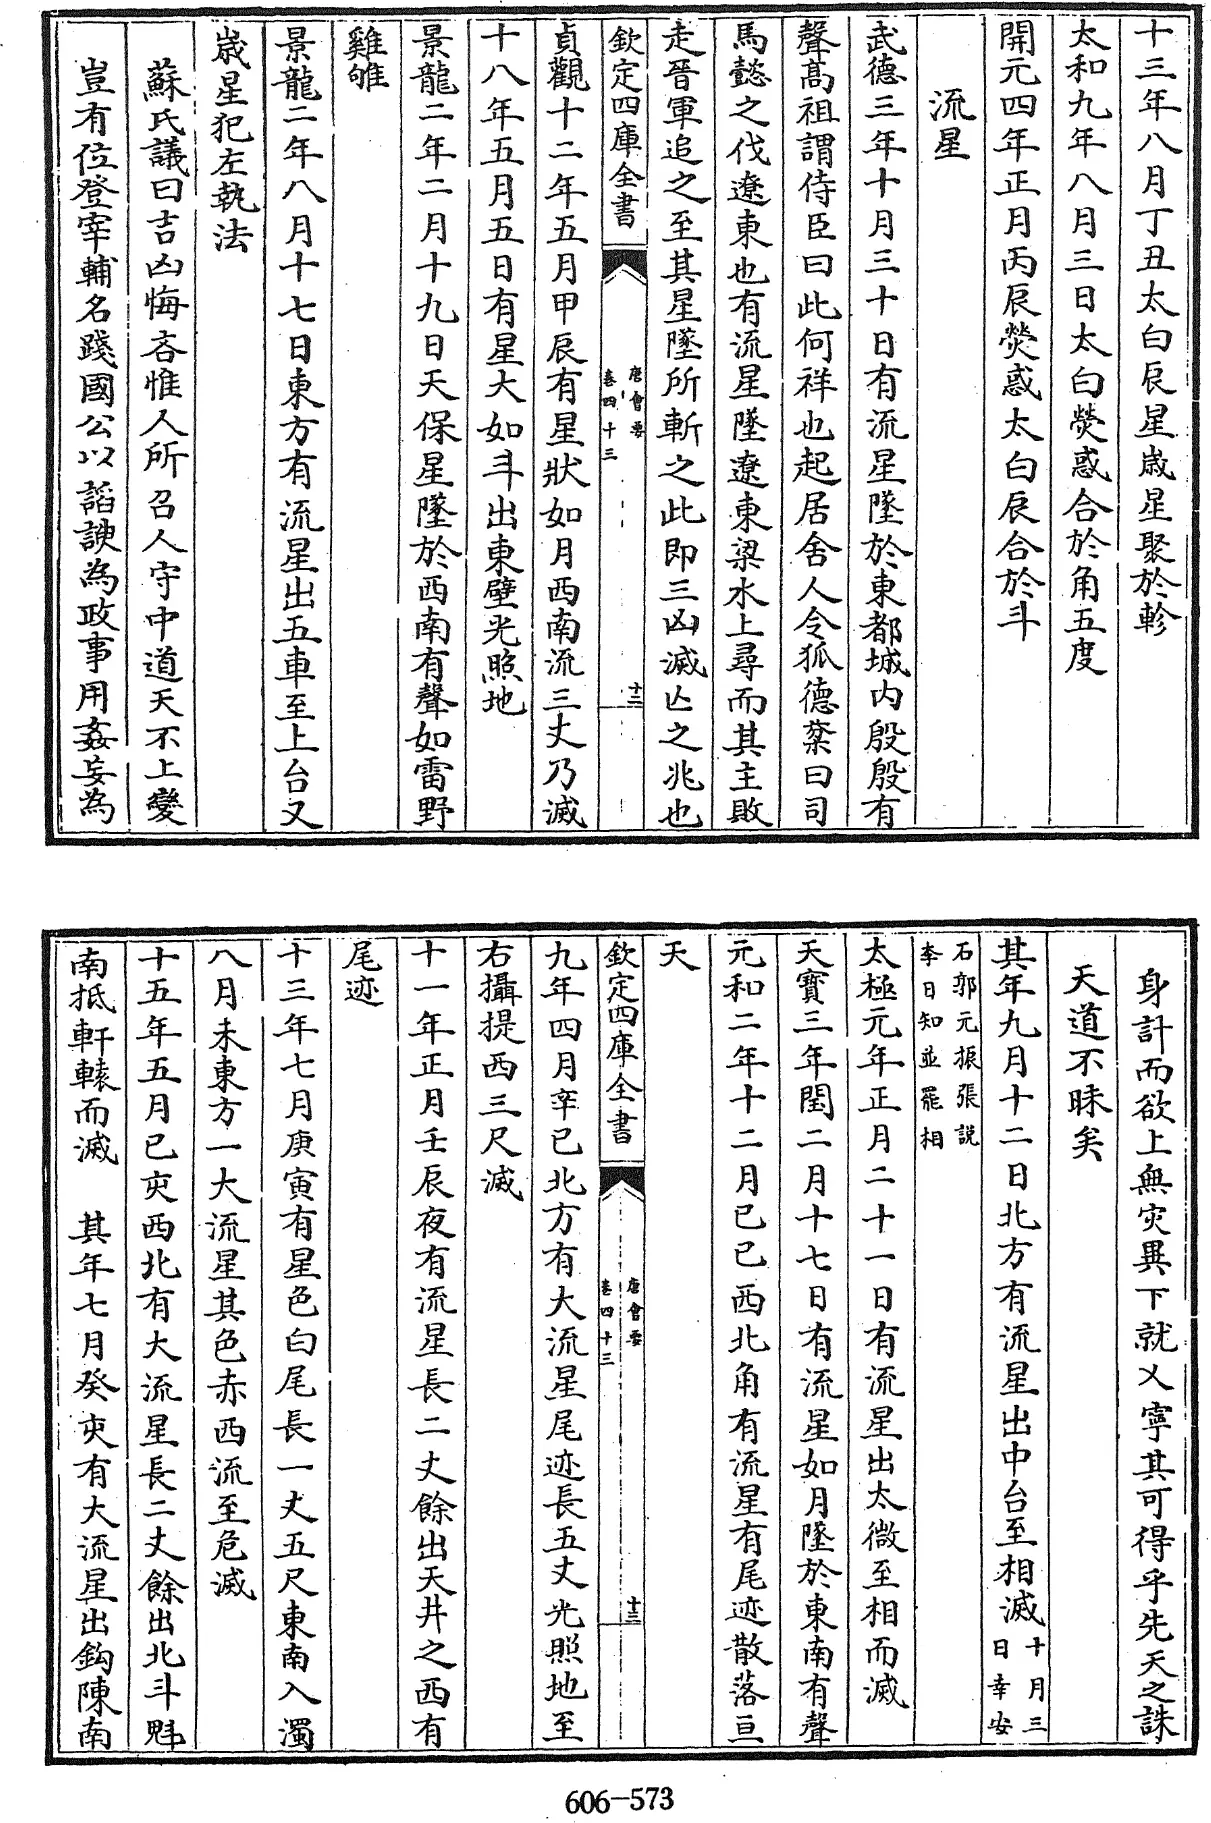 十三年八月丁丑太白辰星歲星聚於軫
太和九年八月三日太白熒惑合於角五度
開元四年正月丙辰熒惑太白辰合於斗
流星
武德三年十月三十日有流星墜於東都城內殷殷有
聲高祖謂侍臣曰此何祥也起居舍人令狐德棻曰司
馬懿之伐遼東也有流星墜遼東梁水上尋而其主敗
走晉軍追之至其星墜所斬之此即三凶滅亾之兆也
欽定四庫全書
唐會要
卷四十三
十二
貞觀十二年五月甲辰有星狀如月西南流三丈乃滅
十八年五月五日有星大如斗出東壁光照地
景龍二年二月十九日天保星墜於西南有聲如雷野
雞雊
景龍二年八月十七日東方有流星出五車至上台又
歲星犯左執法
蘇氏議曰吉凶悔吝惟人所召人守中道天不上變
豈有位登宰輔名踐國公以諂諛為政事用姦妄為
身計而欲上無灾異下就乂寧其可得乎先天之誅
天道不昧矣
其年九月十二日北方有流星出中台至相滅十月三
日幸安
石郭元振張説
李日知並罷相
太極元年正月二十一日有流星出太微至相而滅
天寶三年閏二月十七日有流星如月墜於東南有聲
元和二年十二月己巳西北角有流星有尾迹散落亘
天
欽定四庫全書
唐會要
卷四十三
十三
九年四月辛巳北方有大流星尾迹長五丈光照地至
右攝提西三尺滅
十一年正月壬辰夜有流星長二丈餘出天井之西有
尾迹
十三年七月庚寅有星色白尾長一丈五尺東南入濁
八月未東方一大流星其色赤西流至危滅
十五年五月己亥西北有大流星長二丈餘出北斗魁
南抵軒轅而滅　其年七月癸亥有大流星出鈎陳南
606-573